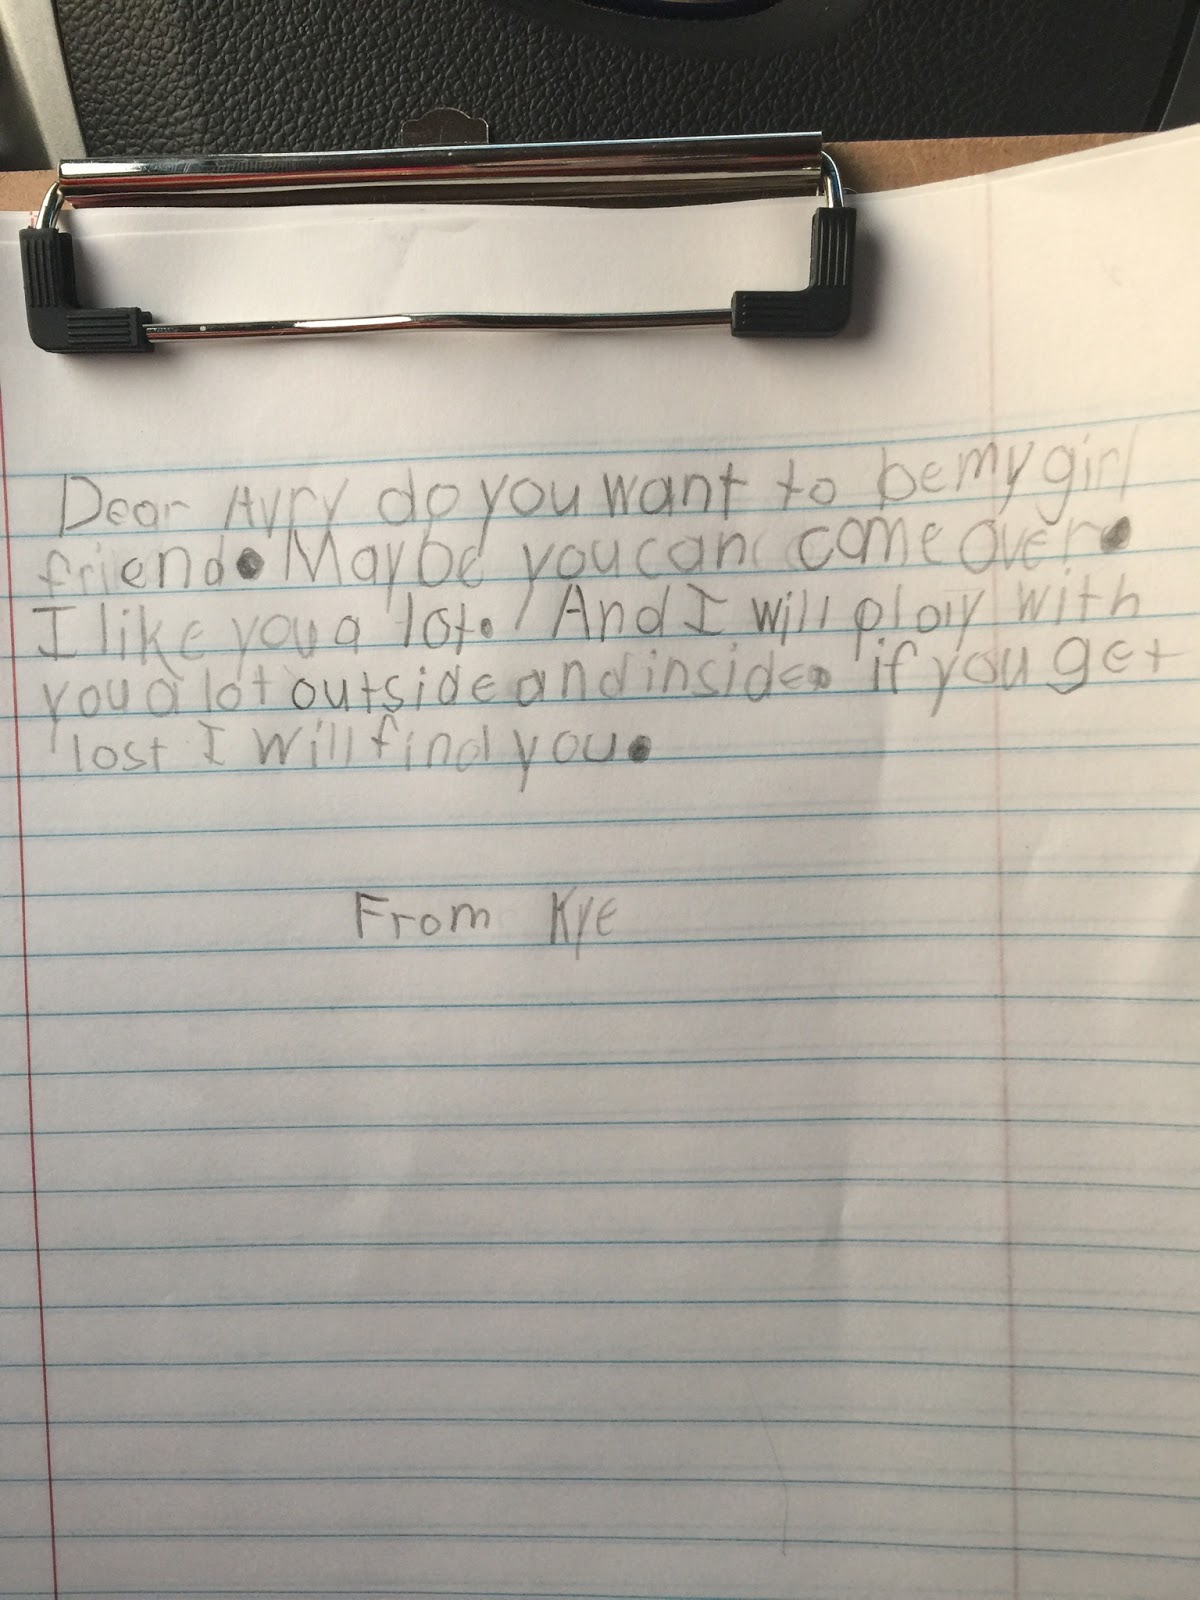 Dear Avry do you want to be my girl
friend. Maybe you can come over.
I like you a lot. And I will play with
you a lot outside and inside. if you get
lost I will find you.
From Kye